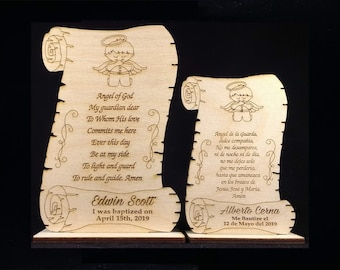 Angel of God
My guardian dear
To Whom His love
Commits me here
Ever this day
Be at my side
To light and guard
To rule and guide. Amen
Edwin Scott
I was baptized on
April 15th, 2019
Angel de la Guarda,
dulce compañía,
No me desampares,
ni de noche ni de dia,
no me dejes solo
que me perdería,
hasta que amanezca
en los brazos de
Jesús José y María
Amen
Alberto Cerna
Me Bautize el
12 de Mayo del 2019